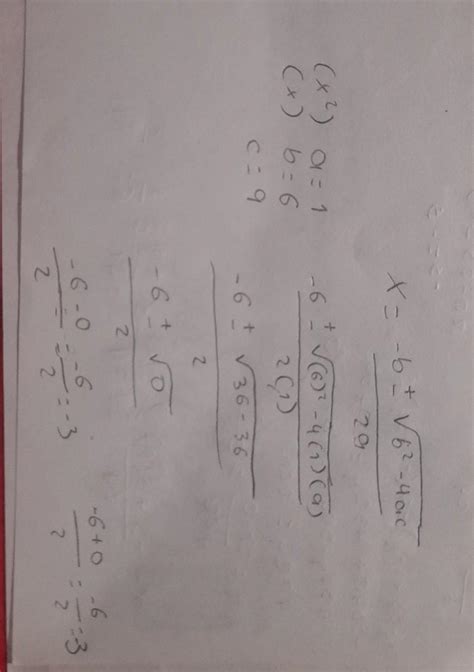 x = -b ± √b² - 4ac / 2a
(x²) a = 1
(x) b = 6
c = 9
-6 ± √(6)² - 4(1)(9) / 2(1)
-6 ± √36 - 36 / 2
-6 ± √0 / 2
-6 - 0 / 2 = -6 / 2 = -3
-6 + 0 / 2 = -6 / 2 = -3